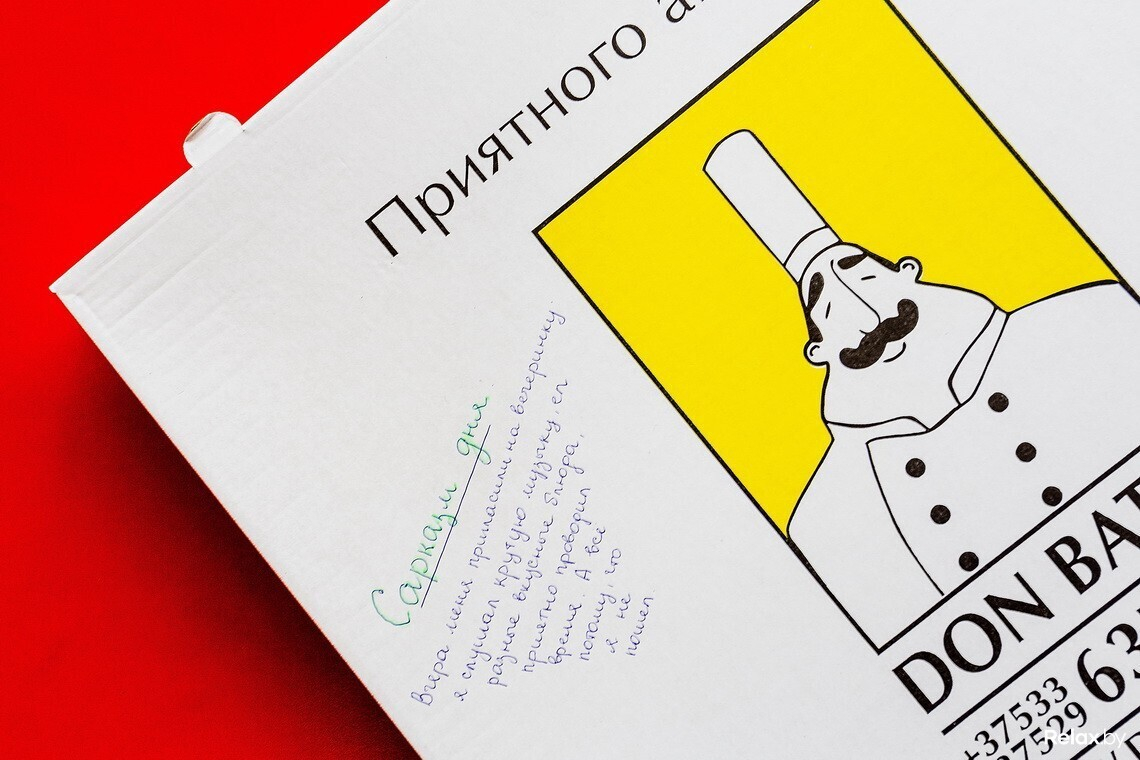 Приятного а
Сарказм дня
Вчера меня пригласили на вечеринку
я слушал крутую музыку, ел
разные вкусные блюда,
приятно проводил
время. А всё
потому, что
я не
пошел
DON BAT
+37533
37529
63
Relax.by